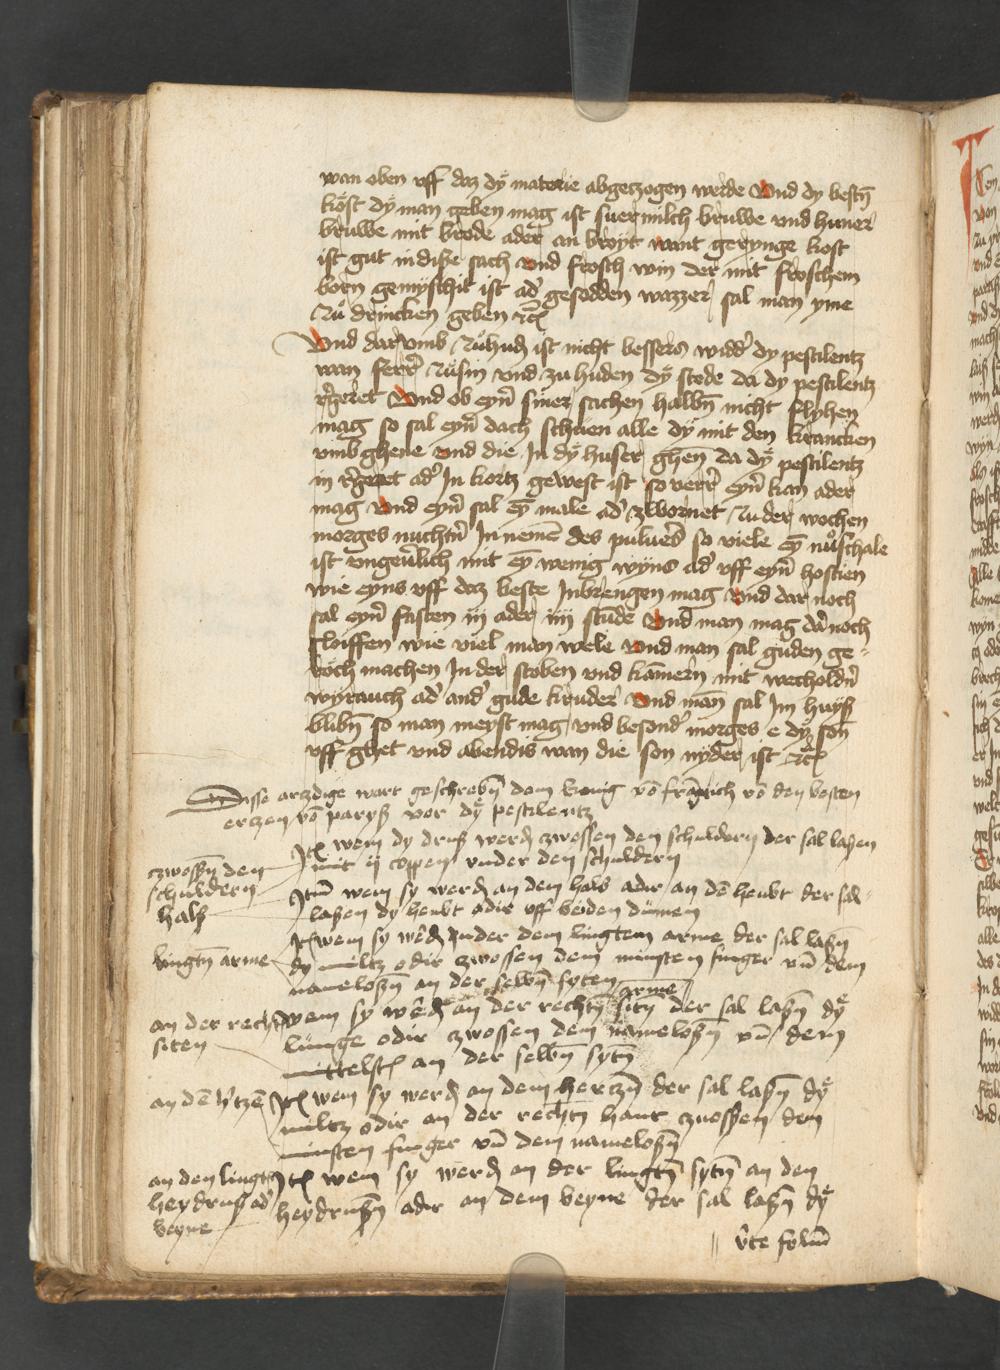 wan oben uff daz dÿ materie abgetzogen werde Und dy bestn̄
kost dÿ man geben mag ist suermilch bruwe und huner
bruwe mit brode ader an broyt want gerynge kost
ist gut in diße sach und frosch win der mit froschem
born gemyschit ist ad' gesodden wazzer sal man yme
zu drincken geben
Und dar vmb zuhud ist nicht bessers widd' dy pestilentz
wan ferr' zusin und zu huden dÿ stede da dy pestilentz
r'geret Und ob eyn' siner sachen halbn̄ nicht flyhen
mag so sal eyn' dach schuen alle dÿ mit den krancken
vmb ghene und die In dÿ huser ghen da dÿ pestilentz
in r'geret ad' In kortz gewest ist so verr' eyn' kan ader
mag und eyn' sal ey̅ male ad' zwornet zu der wochen
morges nuchtn̄ In nemē des puluers so viele ey̅ nußschale
ist ungeuerlich mit ey̅ wenig wyns ad' uff eyn' hostien
wie eyns uff daz beste Inbrengen mag und dar noch
sal eyn' fasten iij ader iiij stude Und man mag da noch
sloiffen wie viel man wele und man sal guden ge-
roch machen In der stoben und kamern mit wecholdn̄
wyrauch ad' and' gude kruder Und man sal Im huyß
blibn̄ so man meyst mag und besond' morges e dÿ son
uff ghet und abendis wan die son nyder ist
Disse arczdige wart geschrebn̄ dem konig vō franckrich vō den besten
erczen vō paryß vor dÿ pestilentz
It' wem dy druß werd' zwossen den schuldern der sal laßen
mit ij coppem under den schuldern
czwossn̄ den
schuldern
Itm̄ wem sy werd' an dem hals adir an dē heubt der sal
laßen dy heubt odir uff beiden dumen
halß
It' wem sy werd' under dem lingtem arme der sal laßn̄
dy miltz odir zwossen dem minsten finger vn̄ dem
namelozn̄ an der selbn̄ syten
lingtn̄ arme
wem sy werd' an der rechtn̄ sitn̄ arme der sal laßn̄ dÿ
lunge odir czwossen dem namelozn̄ vn̄ dem
mittelst' an der selbn̄ sytn̄
an der rechtn̄
siten
It' wem sy werd' an dem hertzn̄ der sal laßn̄ dÿ
miltz odir an der rechtn̄ hant zwossen dem
minsten finger vn̄ dem namelozn̄
an dē h'tzē
It' wem sy werd' an der lingtn̄ sytn̄ an den
heydrußn̄ adir an dem beyne der sal laßn̄ dÿ
an den lingtn̄
heydruß ad'
beyne